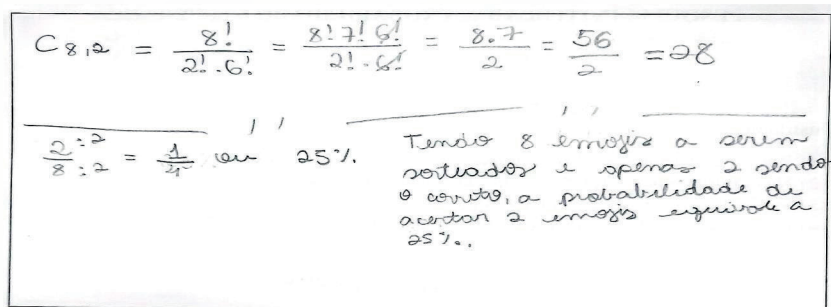 C8,2 = 8!/2!.6! = 8! 7! 6!/2!.6! = 8.7/2 = 56/2 = 28
2:2/8:2 = 1/4 ou 25%. Tendo 8 emojis a serem
sorteados e apenas 2 sendo
o correto, a probabilidade de
acertar 2 emojis equivale a
25%.